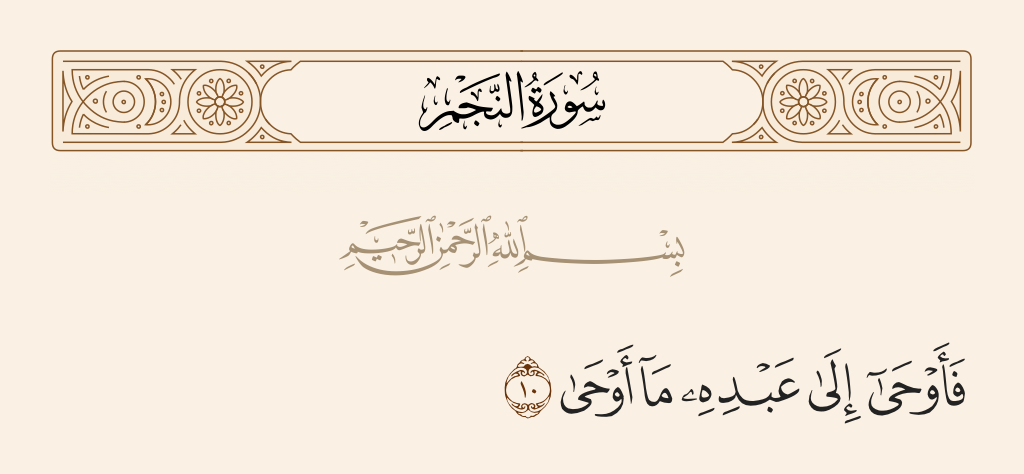 سُورَةُ النَّجْمِ
بِسْمِ ٱللَّهِ ٱلرَّحْمَٰنِ ٱلرَّحِيمِ
فَأَوْحَىٰٓ إِلَىٰ عَبْدِهِۦ مَآ أَوْحَىٰ ١٠